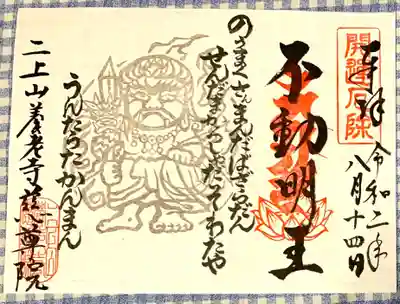 開運厄除
奉拝
令和二年
八月十四日
不動明王
のうまくさんまんだばざらだん
せんだまかろしやだやそわたや
うんたらたかんまん
二上山養老寺慈尊院